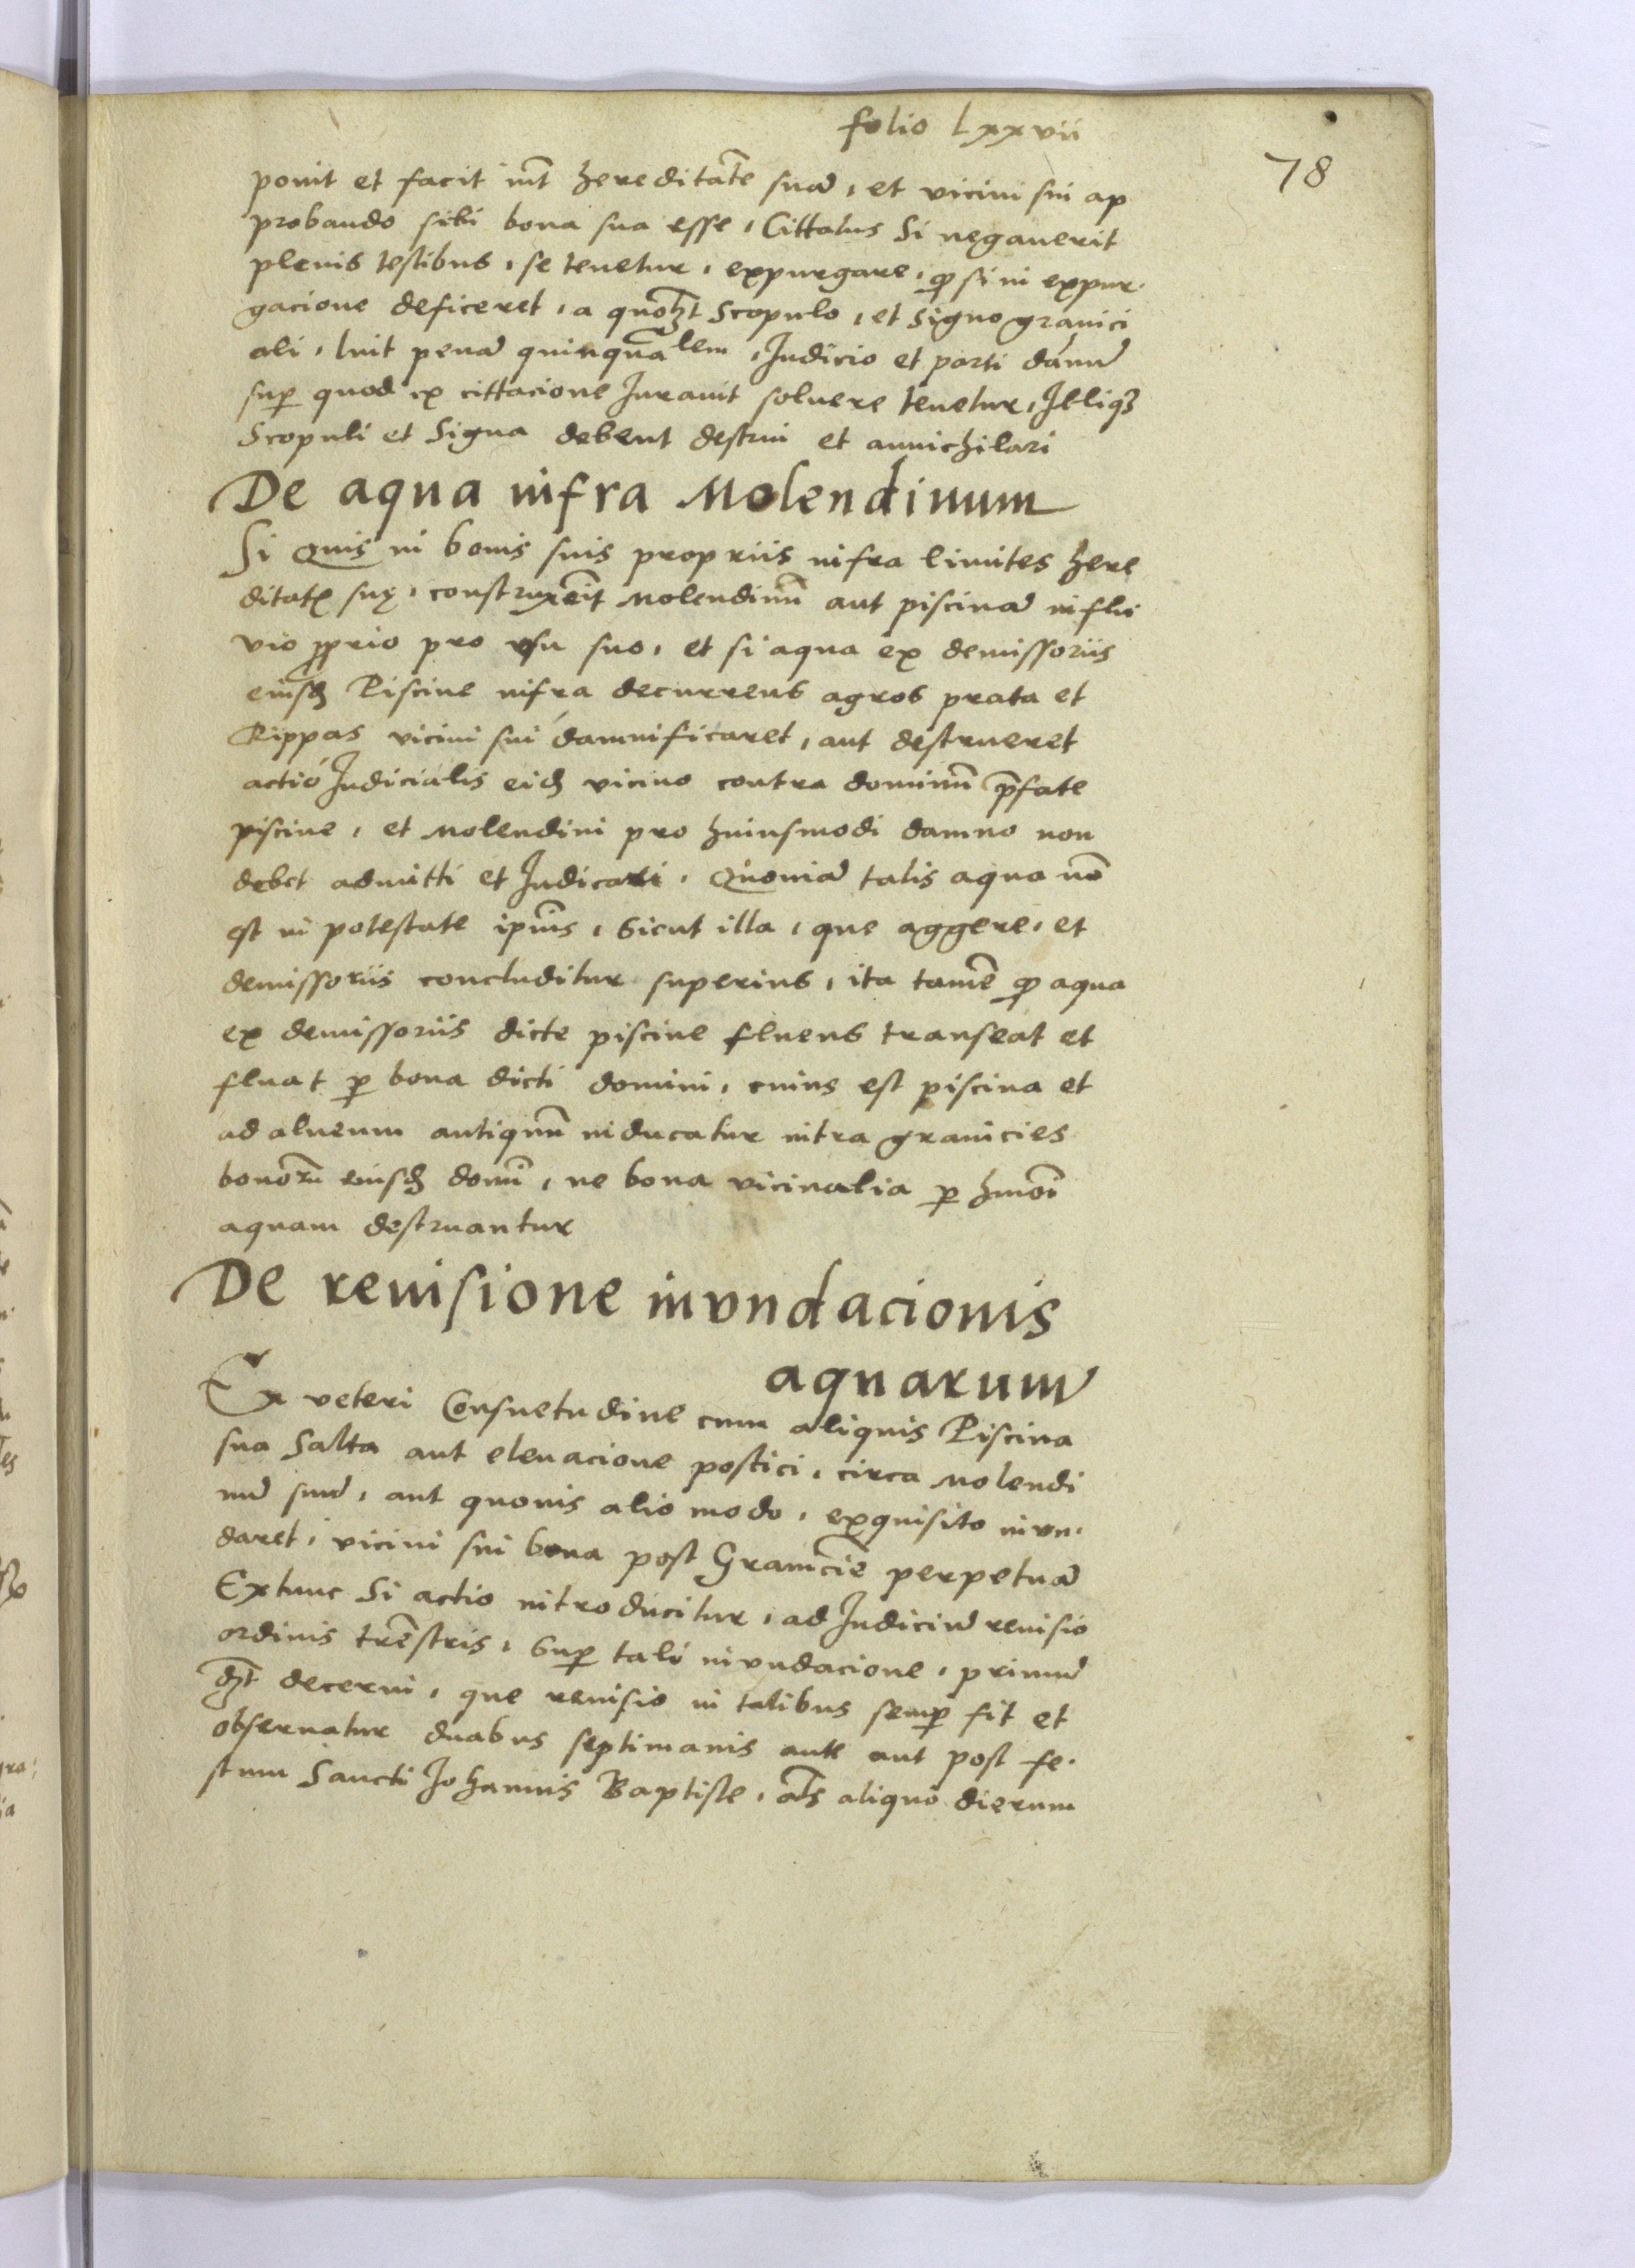 folio Lxxvii
78
ponit et facit int̄ hereditatē suā, et vicini sui ap
probando sibi bona sua esse, Cittatus Si negauerit
plenis testibus, se tenetur, expurgare, ꝙ si in expur.
gacione deficeret, a quolꝫt Scopulo, et Signo granici
ali, luit penā quinqualem, Judicio et parti damū
sup̄ quod ex cittacione Jurauit soluere tenetur, Illiqꝫ
Scopuli et Signa debent destrui et annichilari
De aqua infra Molendinum
Si Quis in bonis suis propriis infra limites here
ditatꝭ suę, construxerit Molendinū aut piscinā in flu
vio ꝓprio pro vsu suo, et si aqua ex demissoriis
eiusdꝫ Piscine infra decurrens agros prata et
Rippas vicini sui damnificaret, aut destrueret
actio Judicialis eidꝫ vicino contra dominū p̄fate
piscine, et Molendini pro huiusmodi damno non
debet admitti et Judicari. Quoniā talis aqua nō
est in potestate ipīus, Sicut illa, que aggere, et
demissoriis concluditur superius, ita tamē ꝙ aqua
ex demissoriis dicte piscine fluens transeat et
fluat ꝑ bona dicti domini, cuius est piscina et
ad alueum antiquū inducatur intra granicies
bonorū eiusdꝫ domī, ne bona vicinalia ꝑ hmōi
aquam destruantur
De reuisione invndacionis
aquarum
Ex veteri Consuetudine cum aliquis Piscina
sua Salta aut eleuacione postici, circa Molendi
nū suū, aut quouis alio modo, exquisito invn.
daret, vicini sui bona post Graniciē perpetuā
Extunc Si actio introducitur, ad Judiciū reuisio
ordinis trēstris, Sup̄ tali invndacione, primū
dꝫt decerni, que reuisio in talibus semp̄ fit et
obseruatur duabus septimanis ante aut post fe.
stum Sancti Johannis Baptiste, al̄s aliquo dierum